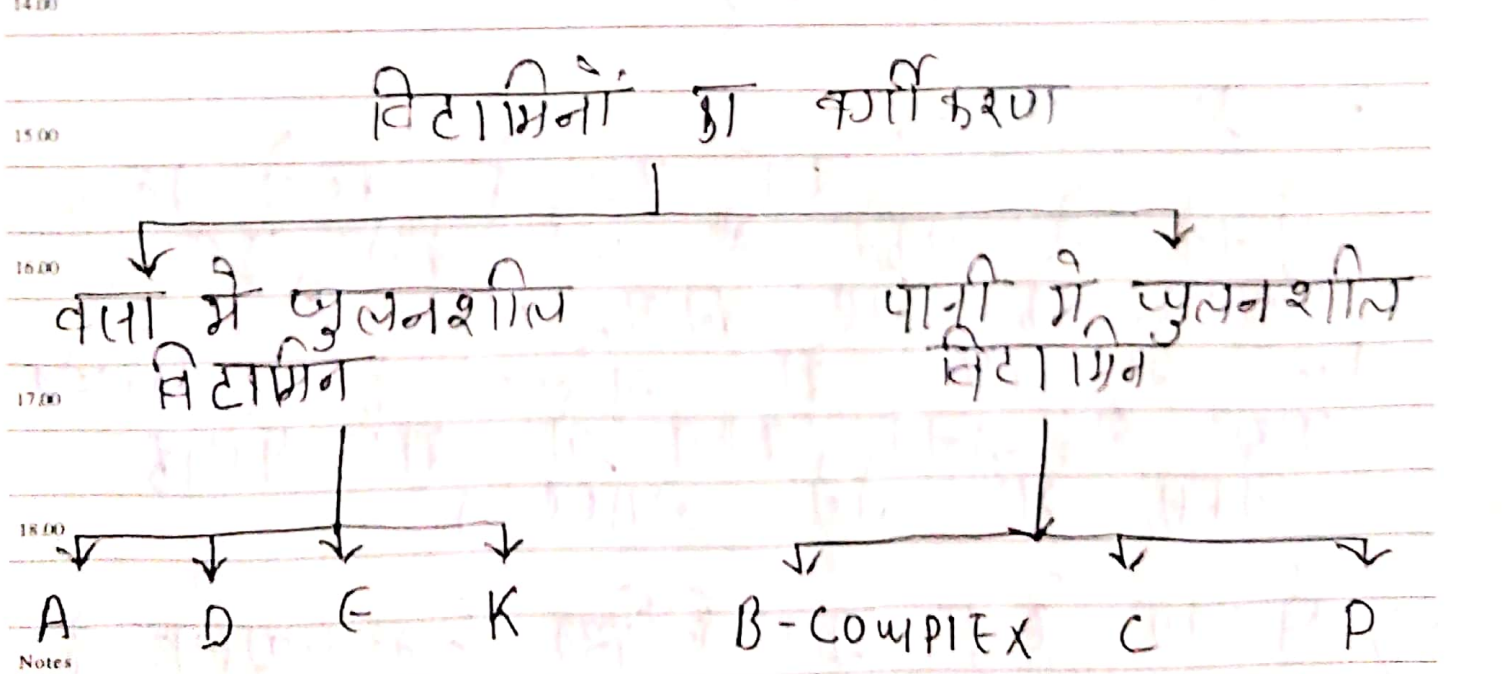 14.00
विटामिनों का वर्गीकरण
15.00
16.00
वसा मे घुलनशील पानी मे घुलनशील
विटामिन विटामिन
17.00
18.00
A D E K B-COMPlEX C P
Notes